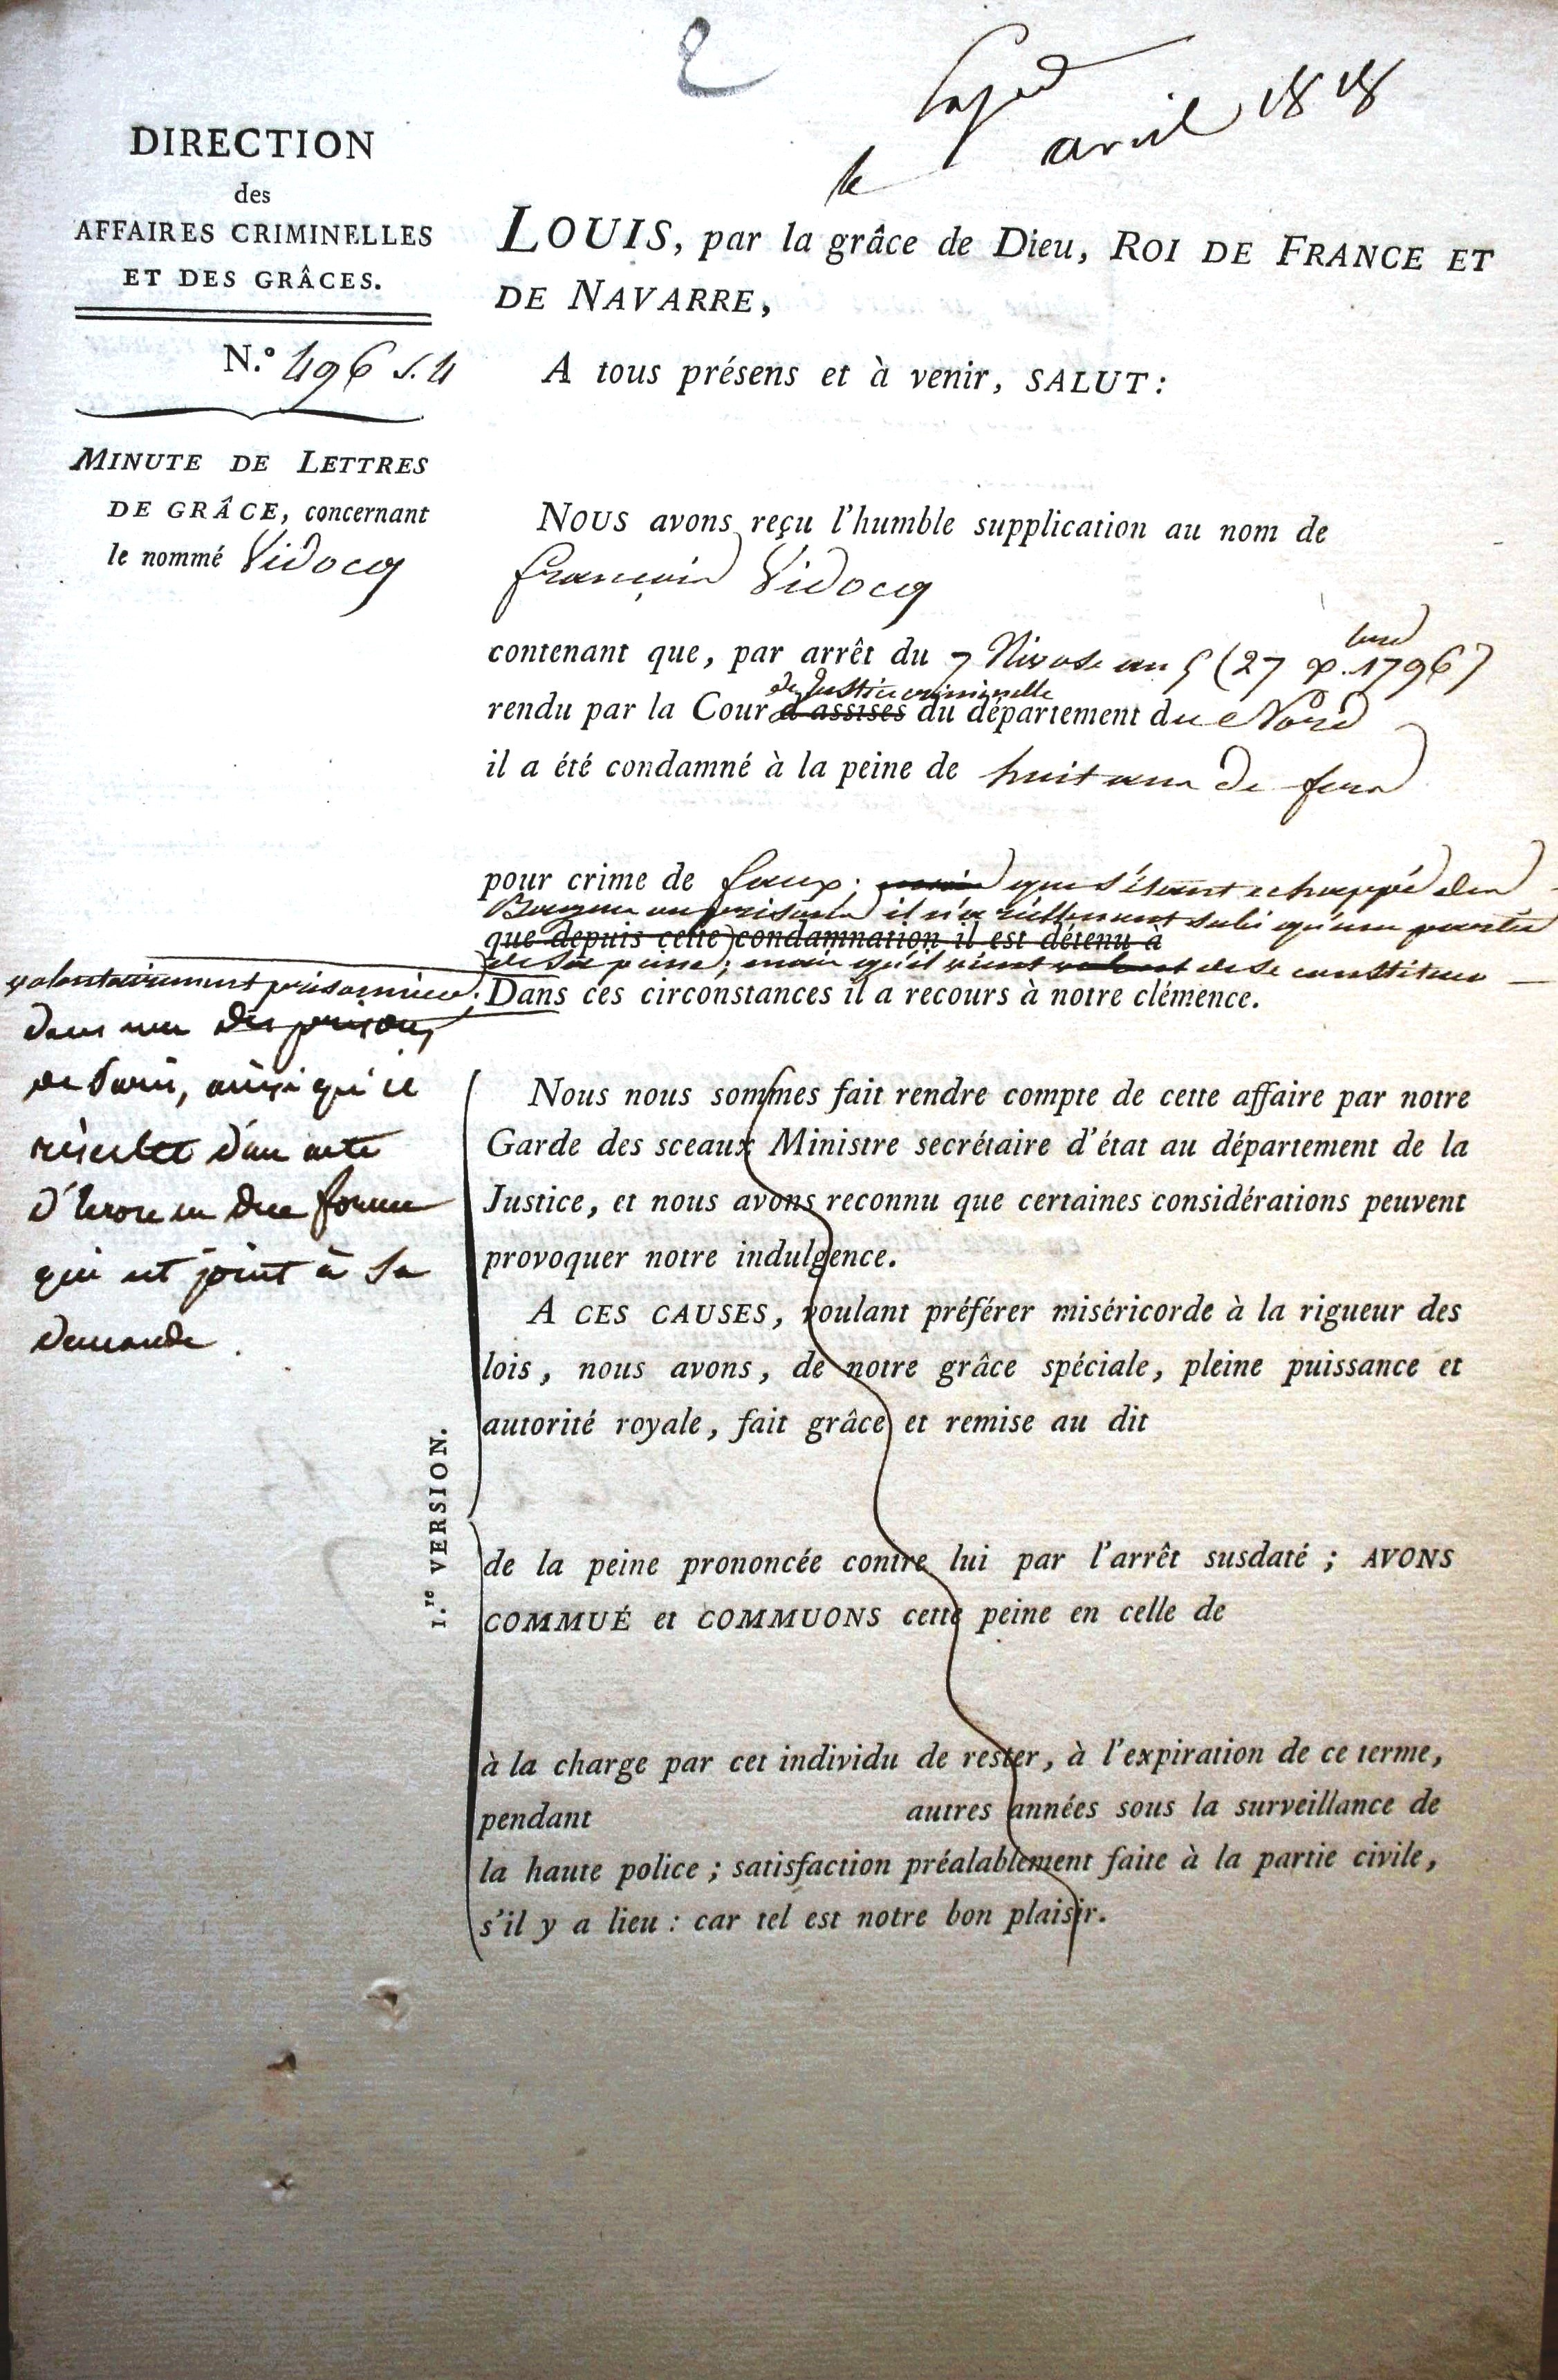 2
le avril 1818
DIRECTION
des
AFFAIRES CRIMINELLES
ET DES GRÂCES.
N.º 496 S. 4
MINUTE DE LETTRES
DE GRÂCE, concernant
le nommé Vidocq
LOUIS, par la grâce de Dieu, ROI DE FRANCE ET
DE NAVARRE,
A tous présens et à venir, SALUT:
NOUS avons reçu l'humble supplication au nom de
françois Vidocq
contenant que, par arrêt du 7 Nivose an 5 (27 Xbre 1796)
de Justice criminelle
rendu par la Cour d'assises du département du Nord
il a été condamné à la peine de huit ans de fers
pour crime de faux; mais que s'étant echappé des
Bagnes ou prisons il n'a réellement subi qu'une partie
que depuis cette condamnation il est détenu à
de sa peine; mais qu'il vient de se constituer
volontairement prisonnier.
Dans ces circonstances il a recours à notre clémence.
dans une des prisons
de Paris, ainsi qu'il
résulte d'un acte
d'écrou en due forme
qui est joint à sa
demande.
1.re VERSION.
Nous nous sommes fait rendre compte de cette affaire par notre
Garde des sceaux Ministre secrétaire d'état au département de la
Justice, et nous avons reconnu que certaines considérations peuvent
provoquer notre indulgence.
A CES CAUSES, voulant préférer miséricorde à la rigueur des
lois, nous avons, de notre grâce spéciale, pleine puissance et
autorité royale, fait grâce et remise au dit
de la peine prononcée contre lui par l'arrêt susdaté; AVONS
COMMUÉ et COMMUONS cette peine en celle de
à la charge par cet individu de rester, à l'expiration de ce terme,
pendant autres années sous la surveillance de
la haute police; satisfaction préalablement faite à la partie civile,
s'il y a lieu: car tel est notre bon plaisir.